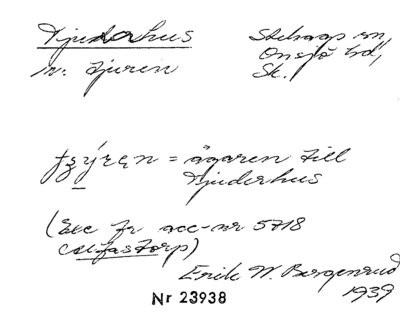 Tjuderhus
m. tjuren
Stehags sn,
Onsjö hd,
Sk.
= ägaren till
Tjuderhus
(Exc fr acc-nr 5718
torp)
Erik W. Bergenrud
1939
Nr 23938